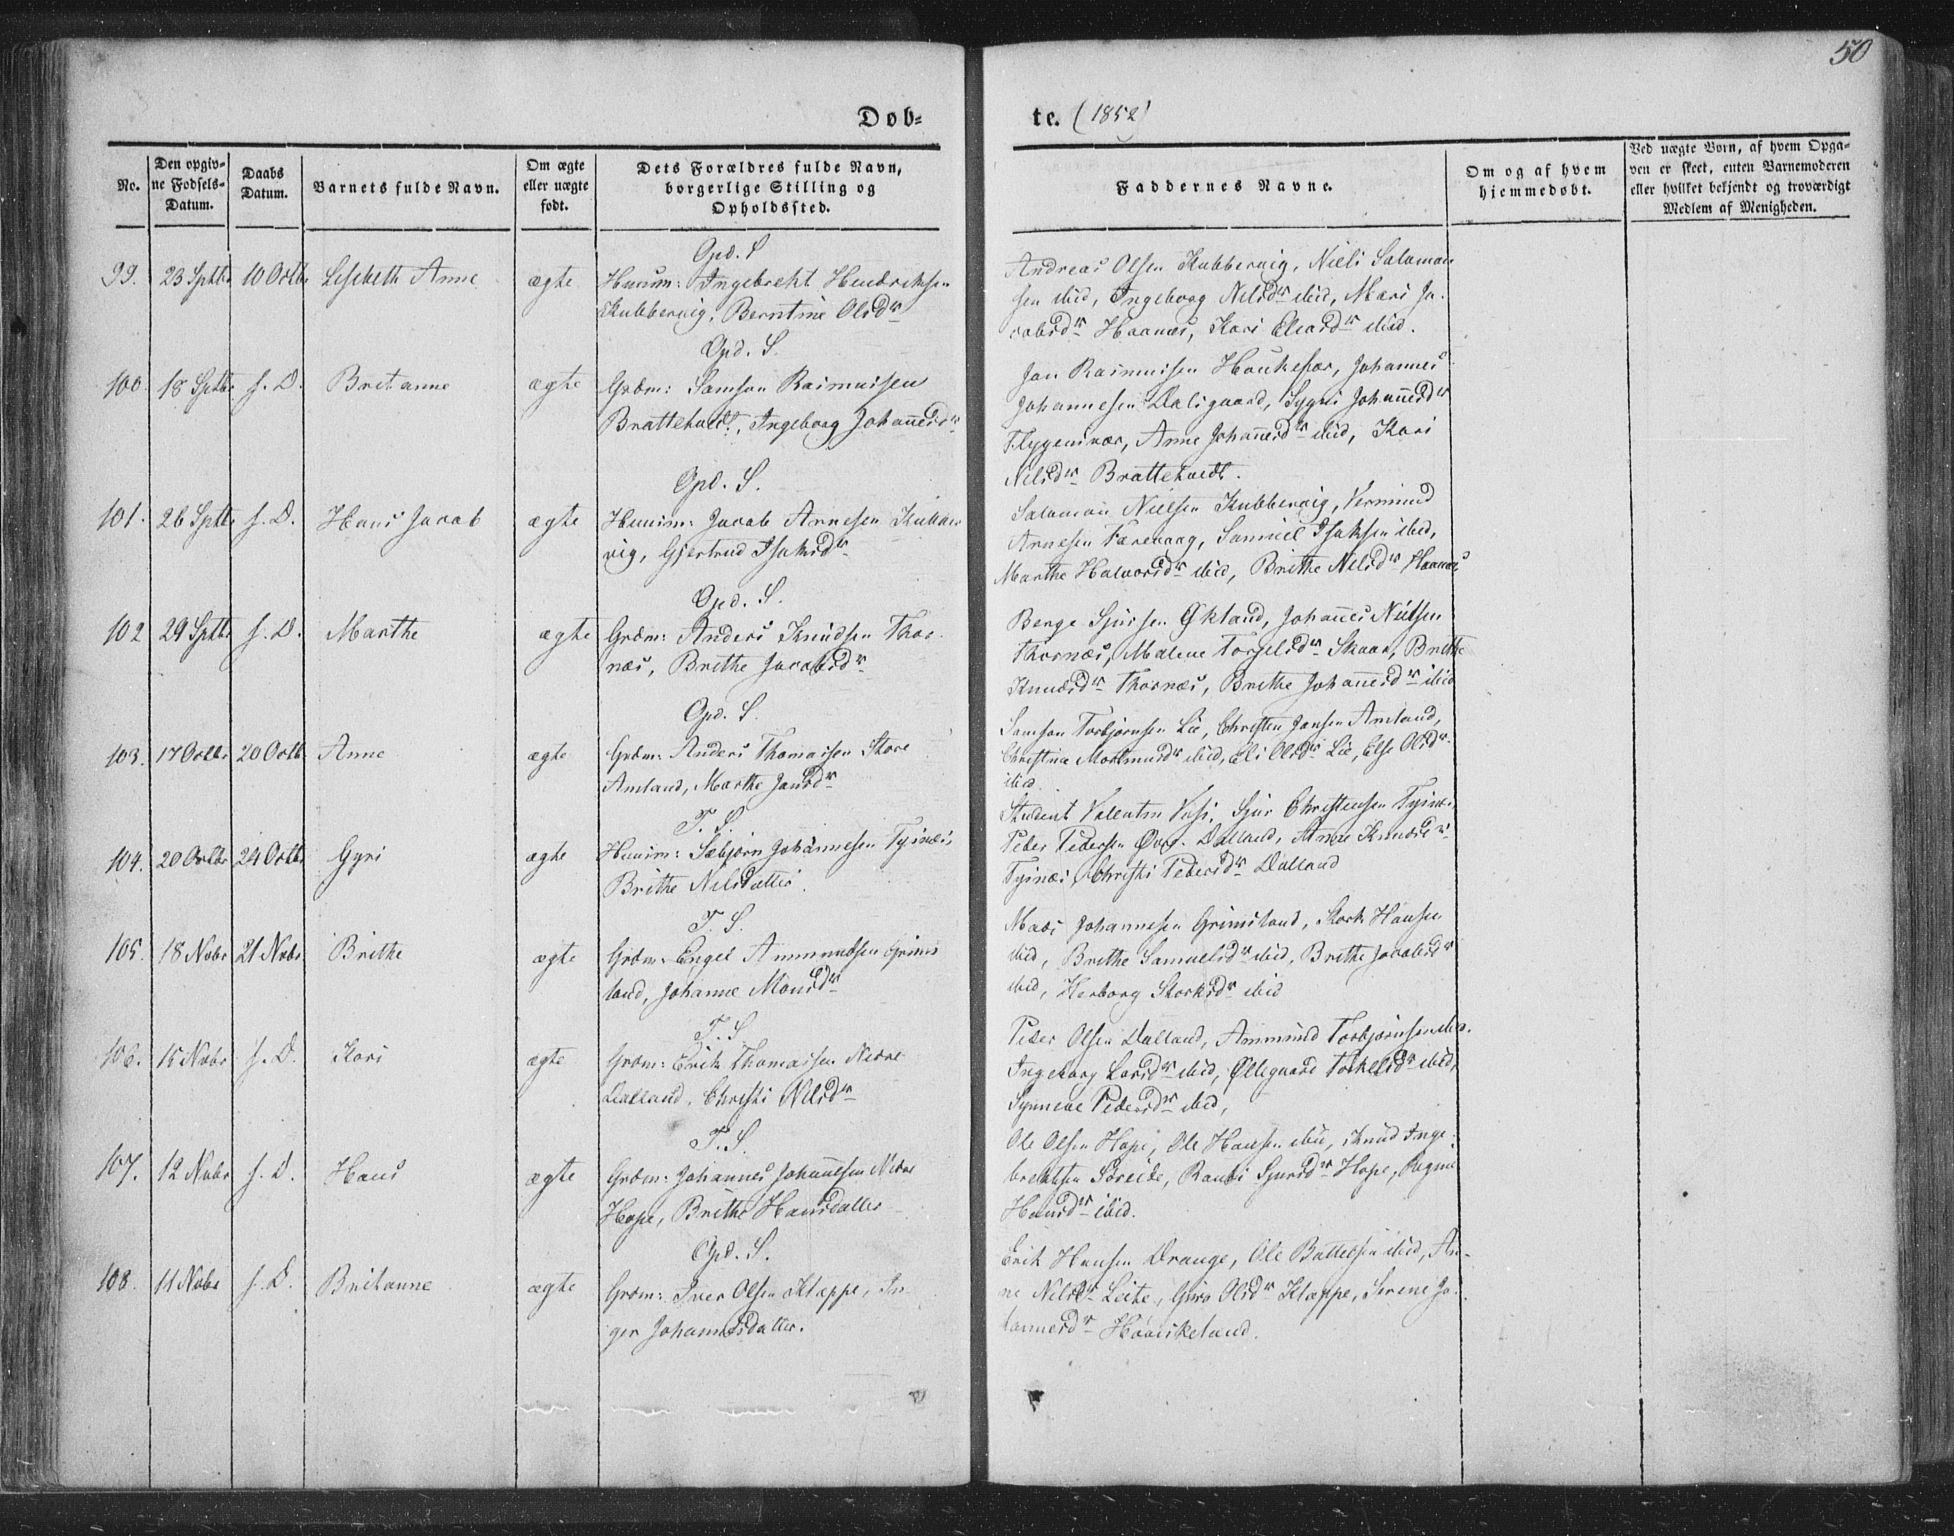 50
Døb-
te. (1852)
No.
Den opgiv-
ne Fødsels-
Datum.
Daabs
Datum.
Barnets fulde Navn.
Om ægte
eller uægte
født.
Dets Forældres fulde Navn,
borgerlige Stilling og
Opholdssted.
Faddernes Navne.
Om og af hvem
hjemmedøbt.
Ved uægte Børn, af hvem Opga-
ven er skeet, enten Barnemoderen
eller hvilket bekjendt og troværdigt
Medlem af Menigheden.
99. 23 Sptbr 10 Octbr Lisebeth Anne ægte
Opd. S
Huusm: Ingebreht Hendriksen
Kubbervig, Berntine Olsdr
Andreas Olsen Kubbervig, Niels Salamon
sen ibid, Ingeborg Nilsdr ibid, Mari Ja-
cobsdr Haanæs, Kari dr ibid.
100. 18 Sptbr s. D. Britanne ægte
Opd. S.
Grdm: Samson Rasmussen
Brattehold, Ingeborg Johañesdr
Jan Rasmussen Haukefær, Johannes
Johannesen Dalsgaard, Sygni Johañesdr
Flygensvær, Anne Johañesdr ibid, Kari
Nilsdr Bratteholdt.
101. 26 Sptbr s. D. Hans Jacob ægte
Opd. S.
Huusm: Jacob Arnesen Kubber
vig, Gjertrud Isaksdr
Salamon Nielsen Kubbervig, Vermund
Arnesen Færevaag, Samuel Isaksen ibid,
Marthe Halvorsdr ibid, Brithe Nilsdr Haanæs
102 29 Sptbr s. D. Marthe ægte
Opd. S.
Grdm: Anders Knudsen Thor
næs, Brithe Jacobsdr
Berge Sjursen Økland, Johañes Nilsen
Thornæs, Malene Torgelsdr Skaar, Brithe
Knudsdr Thornæs, Brithe Johañesdr ibid
103. 17 Octbr 20 Octbr Anne ægte
Opd. S.
Grdm: Anders Thomassen Store
Amland, Marthe Jansdr
Samson Torbjørnsen Lie, Christen Jansen Amland,
Christina dr ibid, Eli Olsdr Lie, Else Olsdr
ibid.
104. 20 Octbr 24 Octbr Gyri ægte
T. S.
Huusm: Sæbjørn Johannesen Tysnæs,
Brithe Nilsdatter.
Student Valentin Sjur Christensen Tysnæs,
Peder Pedersen Øvg. Dalland, Anne Knudsdr
Tysnæs, Christi Pedersdr Dalland
105. 18 Nvbr 21 Nvbr Brithe ægte
T. S.
Grdm: Engel Ammundsen Grims
land, Johanne Monsdr
Mads Johannesen Grimsland, Stork Hansen
ibid, Brithe Samuelsdr ibid, Brithe Jacobsdr
ibid, Herborg Storksdr ibid
106. 15 Nvbr s. D. Kari ægte
T. S.
Grdm: Erik Thomassen Nedre
Dalland, Christi Nilsdr
Peder Olsen Dalland, Ammund Torbjørnsen ibid.
Ingeborg Larsdr ibid, Øllegaard Torkelsdr ibid,
Synneve Pedersdr ibid,
107. 12 Nvbr s. D. Hans ægte
T. S.
Grdm: Johannes Johañesen Nedre
Hope, Brithe Hansdatter
Ole Olsen Hope, Ole Hansen ibid, Knud Inge-
brektsen Søreide, Randi Sjursdr Hope, Ragni
Hansdr ibid.
108. 11 Nvbr s. D. Britanne ægte
Opd. S.
Grdm: Iver Olsen Klæppe, In
ger Johannesdatter.
Erik Hansen Drange, Ole Battelsen ibid, An-
ne Nilsdr Leite, Guro Olsdr Klæppe, Serene Jo-
hannesdr Haaviskeland.